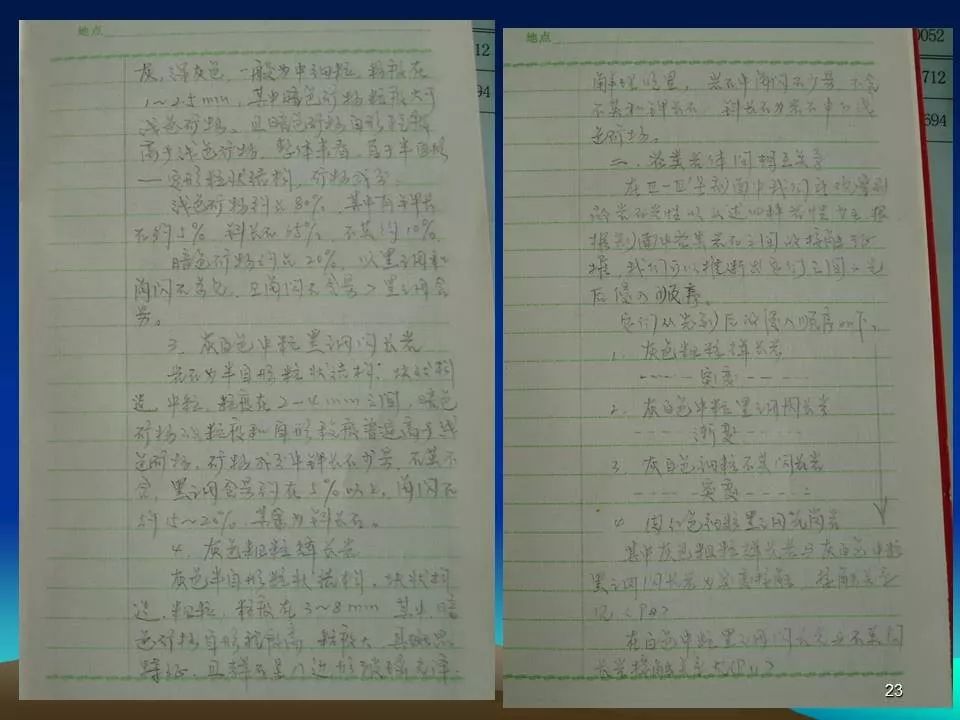 地点
灰，深灰色，一般为中细粒，粒度在
1～2.5mm，其中暗色矿物粒度大于
浅色矿物。且暗色矿物自形程度
高于浅色矿物，整体来看，属于半自形
—它形粒状结构，矿物成分：
浅色矿物约占80%，其中钾长
石约5%，斜长石65%，石英约10%，
暗色矿物约占20%，以黑云母和
角闪石为主，且角闪石含量>黑云母含
量。
3、灰白色中粒黑云母闪长岩
岩石为半自形粒状结构，块状构
造，中粒，粒度在2-4mm之间，暗色
矿物的粒度和自形程度普遍高于浅
色矿物，矿物成分中钾长石少量，石英不
含，黑云母含量约在5%以上，角闪石
约15～20%，其余为斜长石。
4、灰色粗粒辉长岩
灰色半自形粒状结构，块状构
造，粗粒，粒度在3～8mm，其中暗
色矿物自形程度高，粒度大，
特征，且辉石
地点
岩石中角闪石少量，不含
石英和钾长石，斜长石为岩石中的浅
色矿物。
二、各类岩体间相互关系
在 剖面中我们可观察到
的岩石岩性以上述四种岩性为主，根
据剖面中各类岩石之间的接触关
我们可以推断出它们之间的先
后侵入顺序。
它们从先到后的侵入顺序如下：
1、灰色粗粒辉长岩
----突变----
2、灰白色中粒黑云母闪长岩
----渐变----
3、灰白色细粒石英闪长岩
----突变----
4、肉红色细粒黑云母花岗岩
其中灰色粗粒辉长岩与灰白色中粒
黑云母闪长岩为突变接触，接触关系
见
灰白色中粒黑云母闪长岩与石英闪
长岩接触关系
12
94
0052
712
694
23